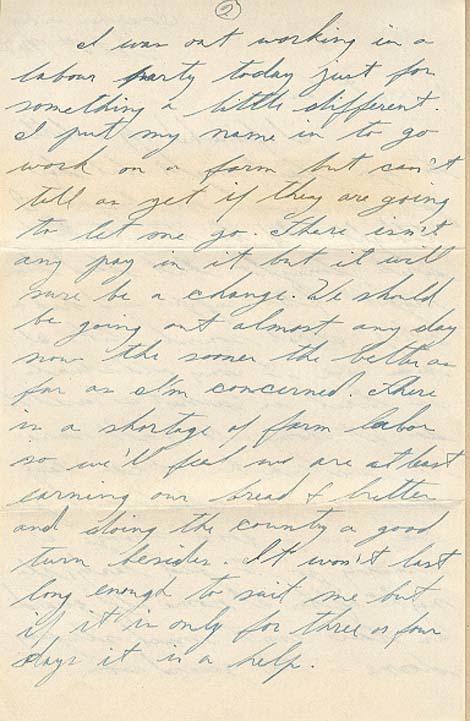 2
I was out working in a
labour party today just for
something a little different.
I put my name in to go
work on a farm but can't
tell as yet if they are going
to let me go. There isn't
any pay in it but it will
sure be a change. We should
be going out almost any day
now the sooner the better as
far as I'm concerned. There
is a shortage of farm labor
so we'll feel we are at least
earning our bread & butter
and doing the country a good
turn besides. It won't last
long enough to suit me but
if it is only for three or four
days it is a help.